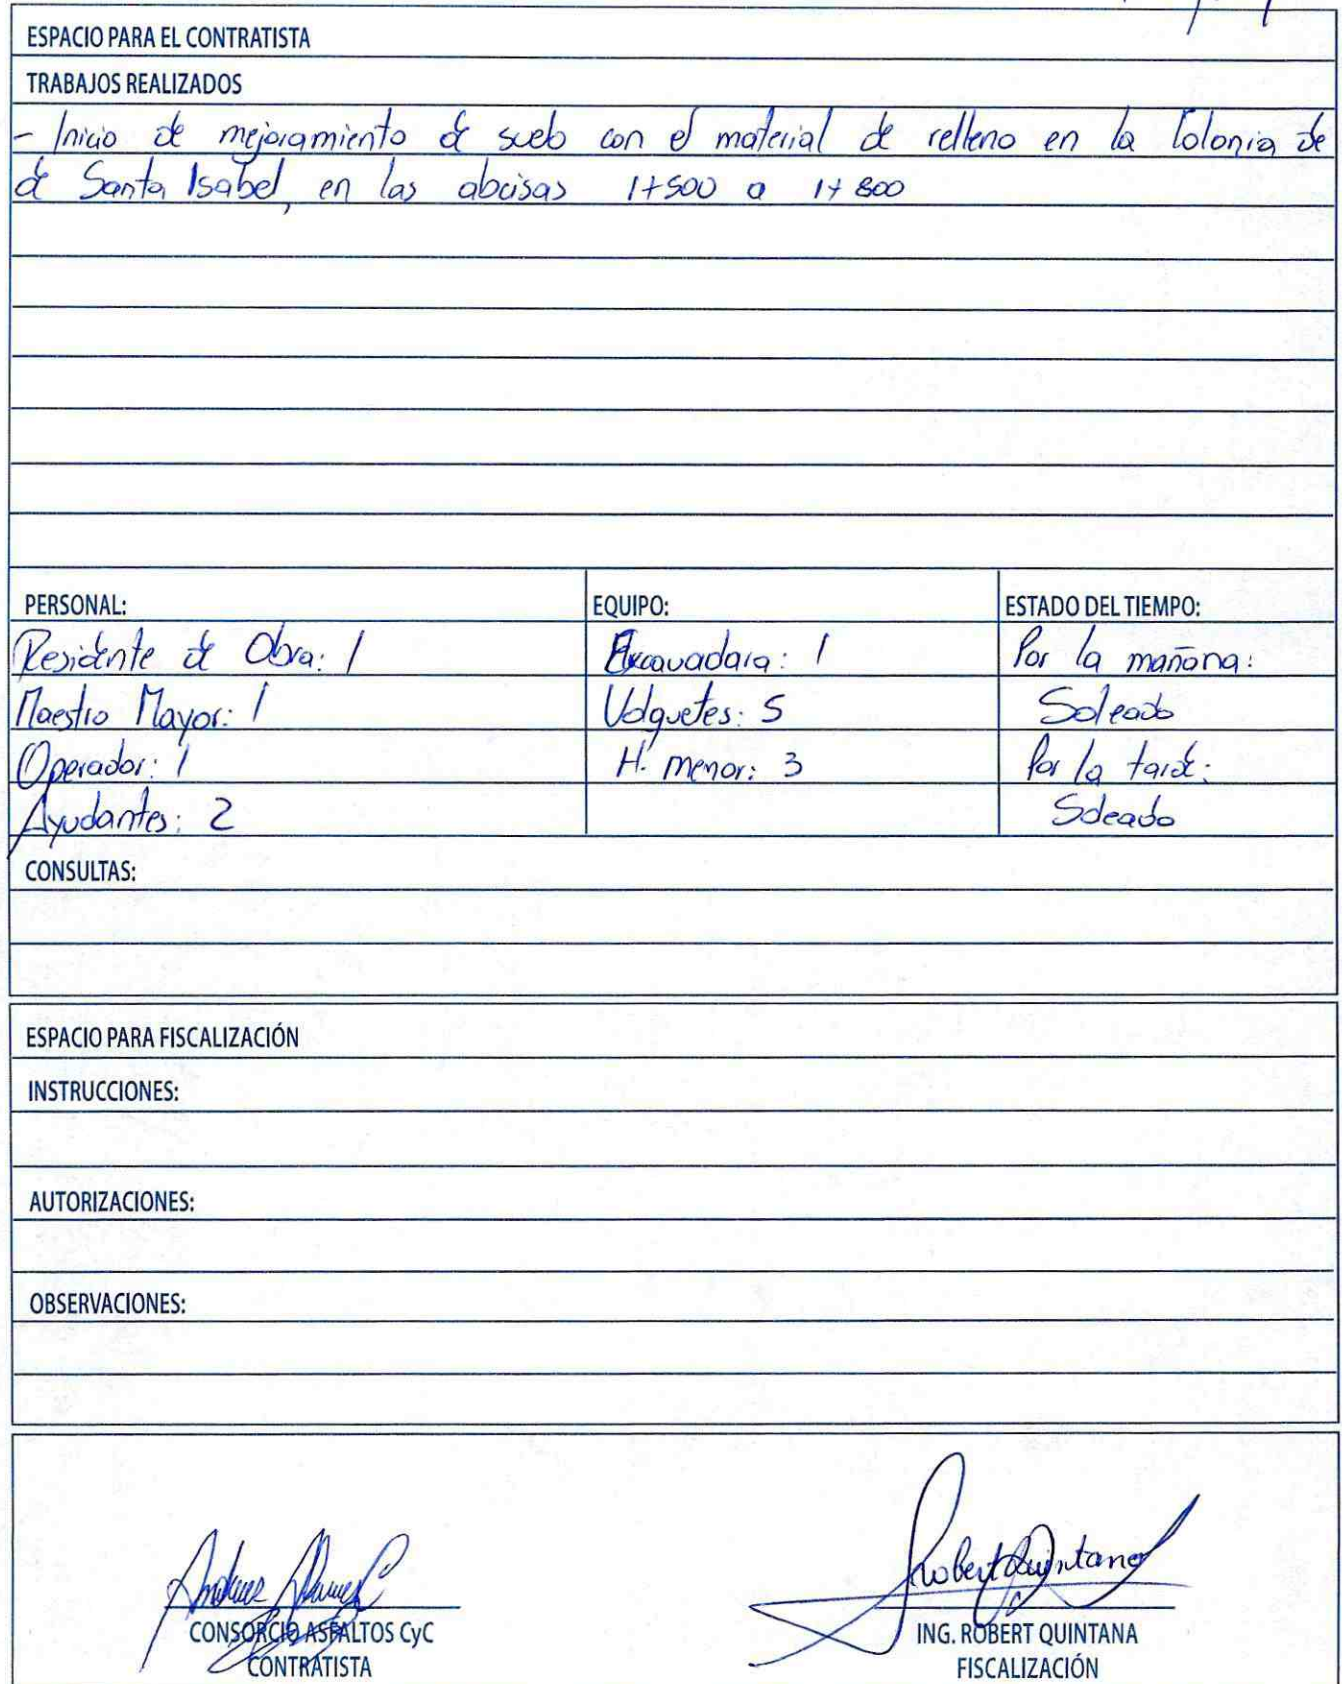 ESPACIO PARA EL CONTRATISTA
TRABAJOS REALIZADOS
- Inicio de mejoramiento de suelo con el material de relleno en la Colonia de
de Santa Isabel, en las abcisas 1+500 a 1+800
PERSONAL: EQUIPO: ESTADO DEL TIEMPO:
Residente de Obra: 1 Excavadara: 1 Por la mañana:
Maestro Mayor: 1 Volquetes: 5 Soleado
Operador: 1 H. menor: 3 Por la tarde:
Ayudantes: 2 Soleado
CONSULTAS:
ESPACIO PARA FISCALIZACIÓN
INSTRUCCIONES:
AUTORIZACIONES:
OBSERVACIONES:
Robert Quintana
CONSORCIO ASFALTOS CyC ING. ROBERT QUINTANA
CONTRATISTA FISCALIZACIÓN